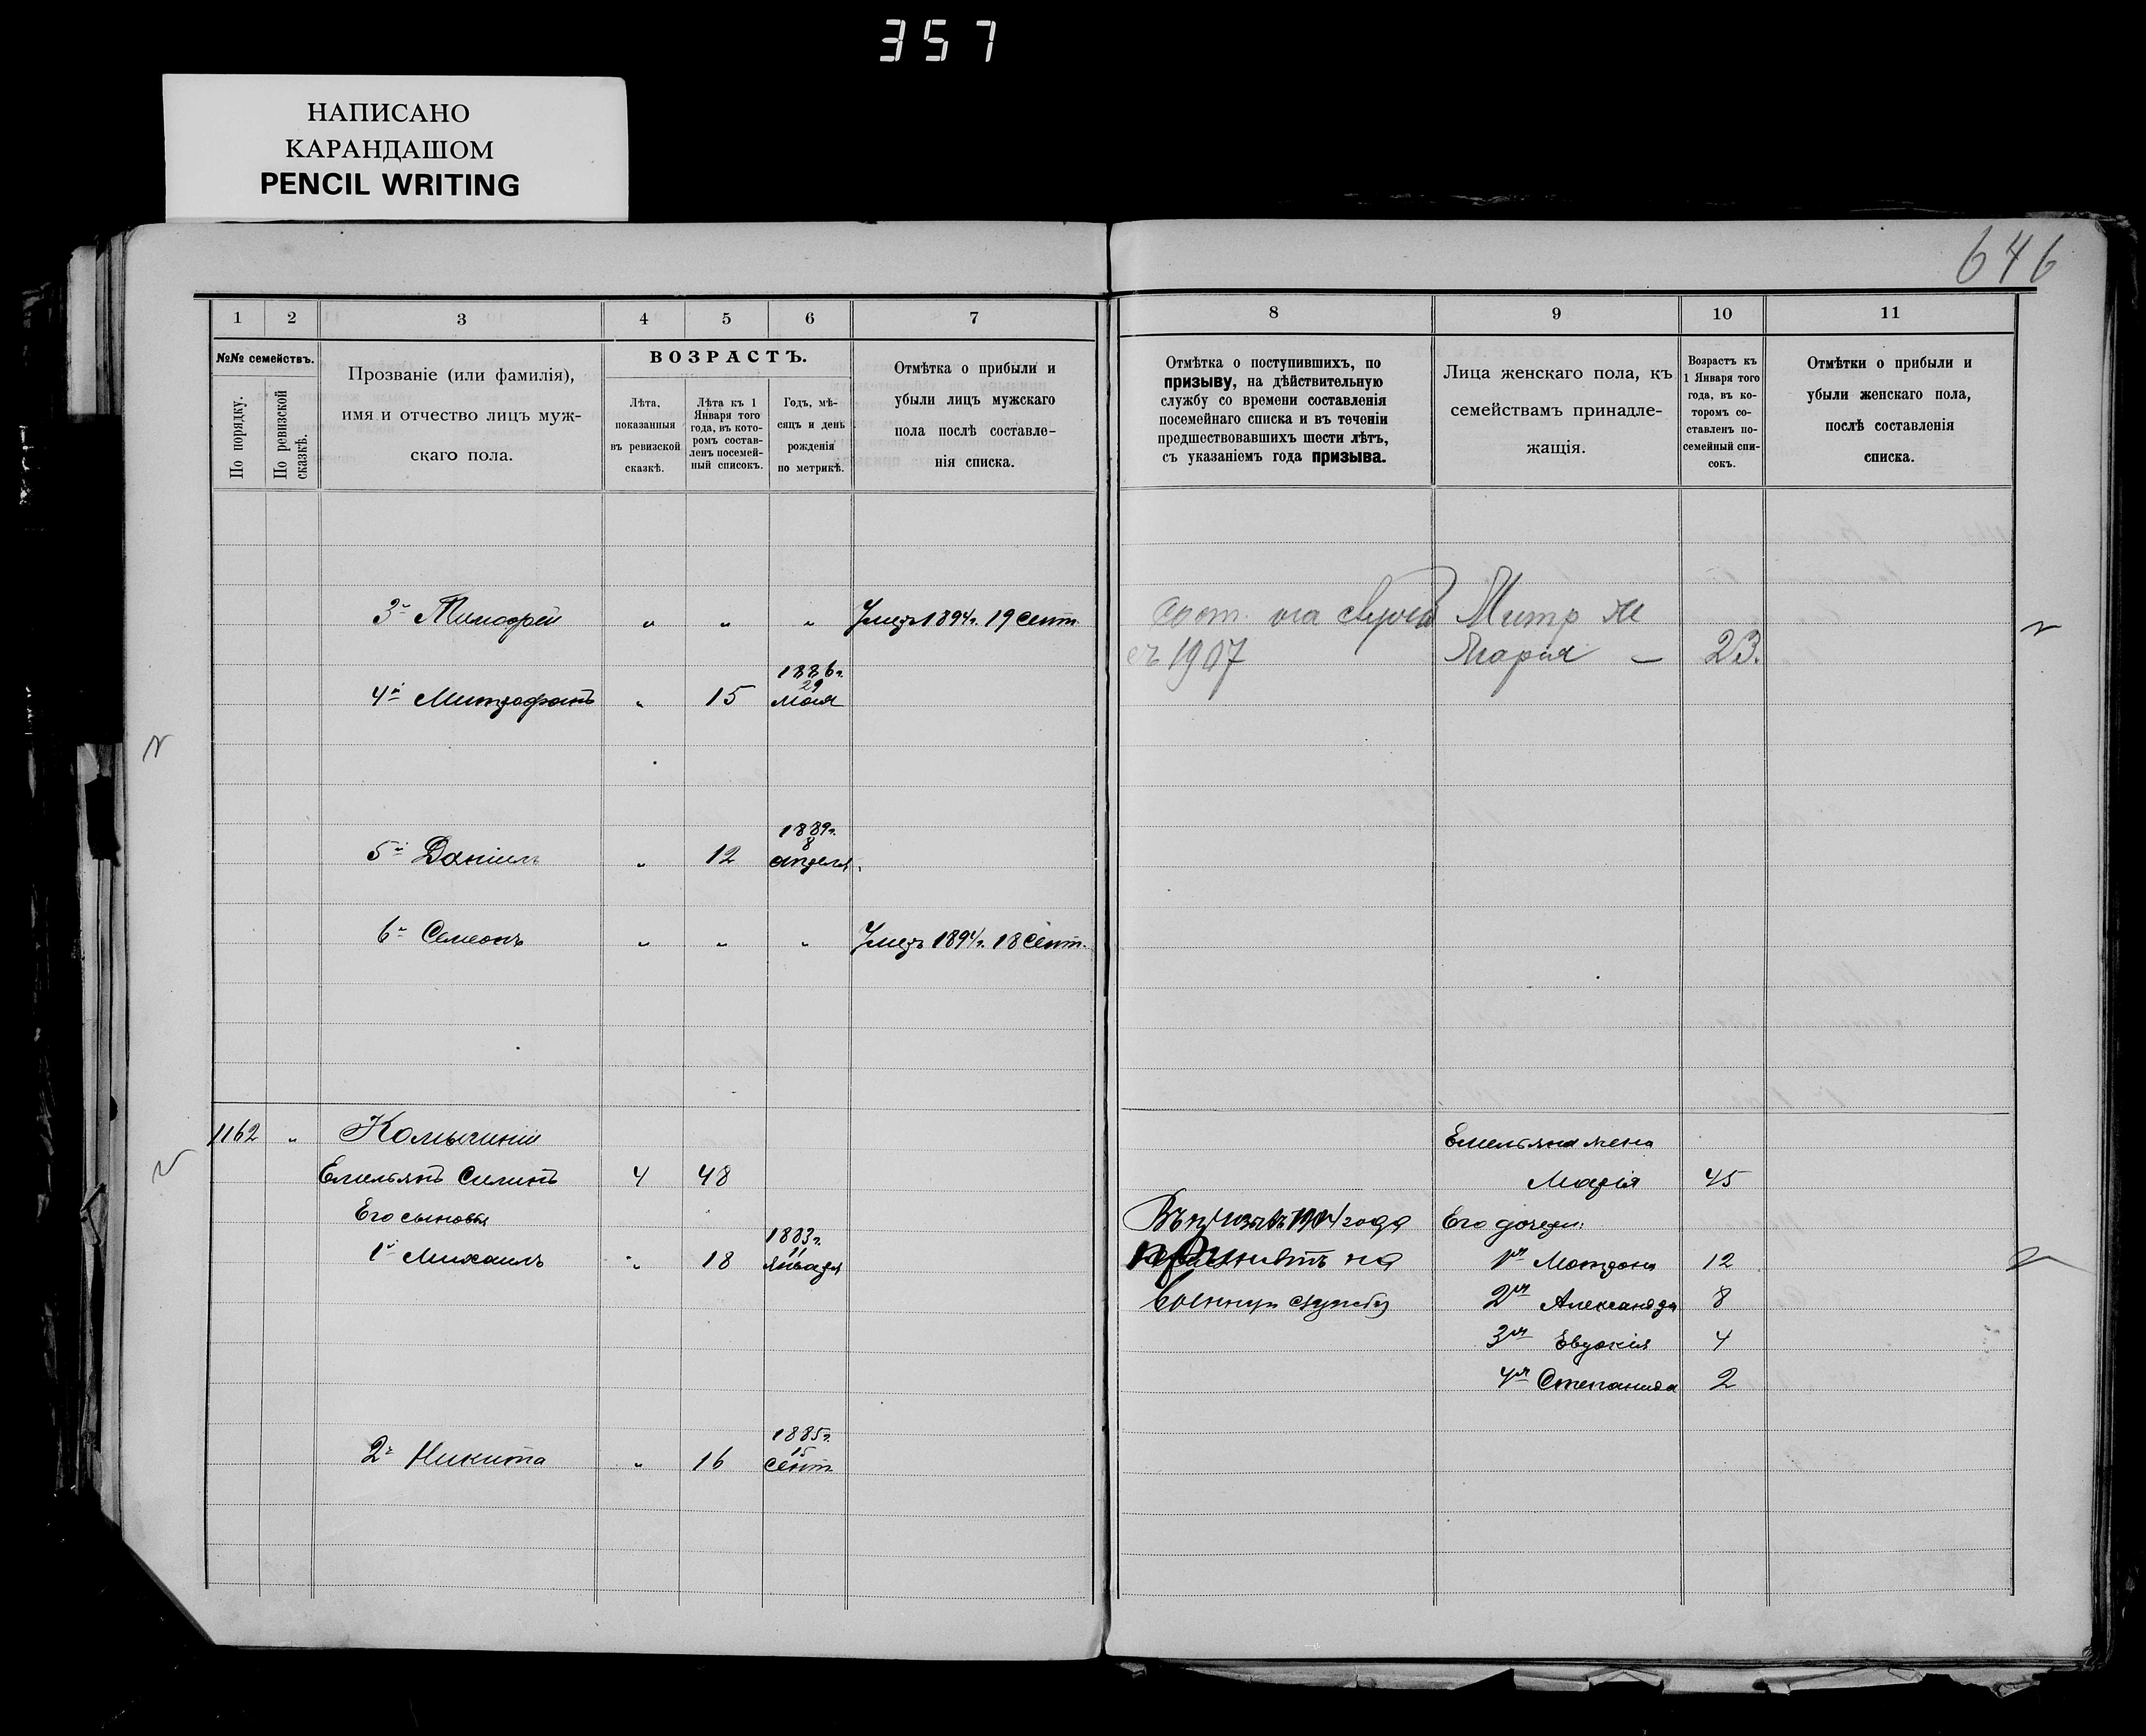 357
НАПИСАНО
КАРАНДАШОМ
PENCIL WRITING
646
1 2 3 4 5 6 7
№№ семействъ.
По порядку.
По ревизской сказкѣ.
Прозваніе (или фамилія),
имя и отчество лицъ муж-
скаго пола.
ВОЗРАСТЪ.
Лѣта,
показанныя
въ ревизской
сказкѣ.
Лѣта къ 1
Января того
года, въ кото-
ромъ состав-
ленъ посемей-
ный списокъ.
Годъ, мѣ-
сяцъ и день
рожденія
по метрикѣ.
Отмѣтка о прибыли и
убыли лицъ мужскаго
пола послѣ составле-
нія списка.
8 9 10 11
Отмѣтка о поступившихъ, по
призыву, на дѣйствительную
службу со времени составленія
посемейнаго списка и въ теченіи
предшествовавшихъ шести лѣтъ,
съ указаніемъ года призыва.
Лица женскаго пола, къ
семействамъ принадле-
жащія.
Возрастъ къ
1 Января того
года, въ ко-
торомъ со-
ставленъ по-
семейный спи-
сокъ.
Отмѣтки о прибыли и
убыли женскаго пола,
послѣ составленія
списка.
3й Тимофей " " " Умеръ 1894г. 19 сент.
1886г.
29
4й Митрофанъ " 15 мая
1889г.
8
5й Даніилъ " 12 апреля
6й Семеонъ " " " Умеръ 1894г. 18 сент.
1162 "
Емельянъ Силинъ 4 48
Его сыновья
1883г.
11
1й Михаилъ " 18 января
1885г.
15
2й Никита " 16 сент.
сост. на
съ 1907
Митр ж
Мария – 23.
Емельяна жена
Марія 45
Въ призывъ 1904 года
принятъ на
военную службу
Его дочери:
1я Матрона 12
2я Александра 8
3я Евдокія 4
4я Степанида 2